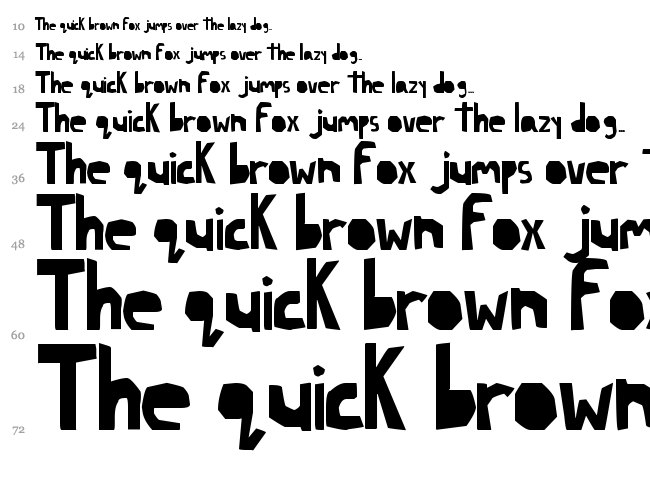 10 The quicK brown Fox jumps over the lazy dog...
14 The quicK brown Fox jumps over the lazy dog...
18 The quicK brown Fox jumps over the lazy dog...
24 The quicK brown Fox jumps over the lazy dog...
36 The quicK brown Fox jumps over
48 The quicK brown Fox jum
60 The quicK brown Fox
72 The quicK brown